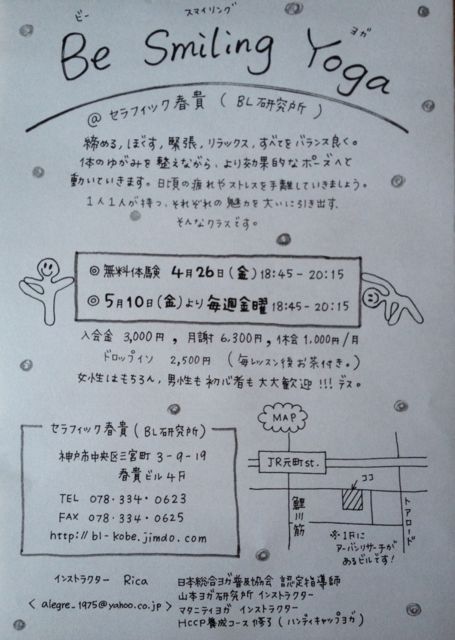 ビー スマイリング ヨガ
Be Smiling Yoga
@ セラフィック春貴 ( BL研究所 )
締める, ほぐす, 緊張, リラックス, すべてをバランス良く。
体のゆがみを整えながら、より効果的なポーズへと
動いていきます。日頃の疲れやストレスを手離していきましょう。
1人1人が持つ、それぞれの魅力を大いに引き出す、
そんなクラスです。
◎ 無料体験 4月26日(金) 18:45 - 20:15
◎ 5月10日(金)より 毎週金曜 18:45 - 20:15
入会金 3,000円 , 月謝 6,300円 , 休会 1,000円/月
ドロップイン 2,500円 ( 毎レッスン後お茶付き。)
女性はもちろん, 男性も初心者も大大歓迎 !!! デス。
セラフィック春貴 ( BL研究所)
神戸市中央区三宮町 3-9-19
春貴ビル 4F
TEL 078・334・0623
FAX 078・334・0625
http://bl-kobe.jimdo.com
MAP
JR元町st.
ココ
鯉川筋
トアロード
※1Fに
アーバンリサーチが
あるビルです!
インストラクター Rica 日本総合ヨガ普及協会 認定指導師
山本ヨガ研究所 インストラクター
< alegre_1975@yahoo.co.jp > マタニティヨガ インストラクター
HCCP養成コース 修了 (ハンディキャップヨガ)